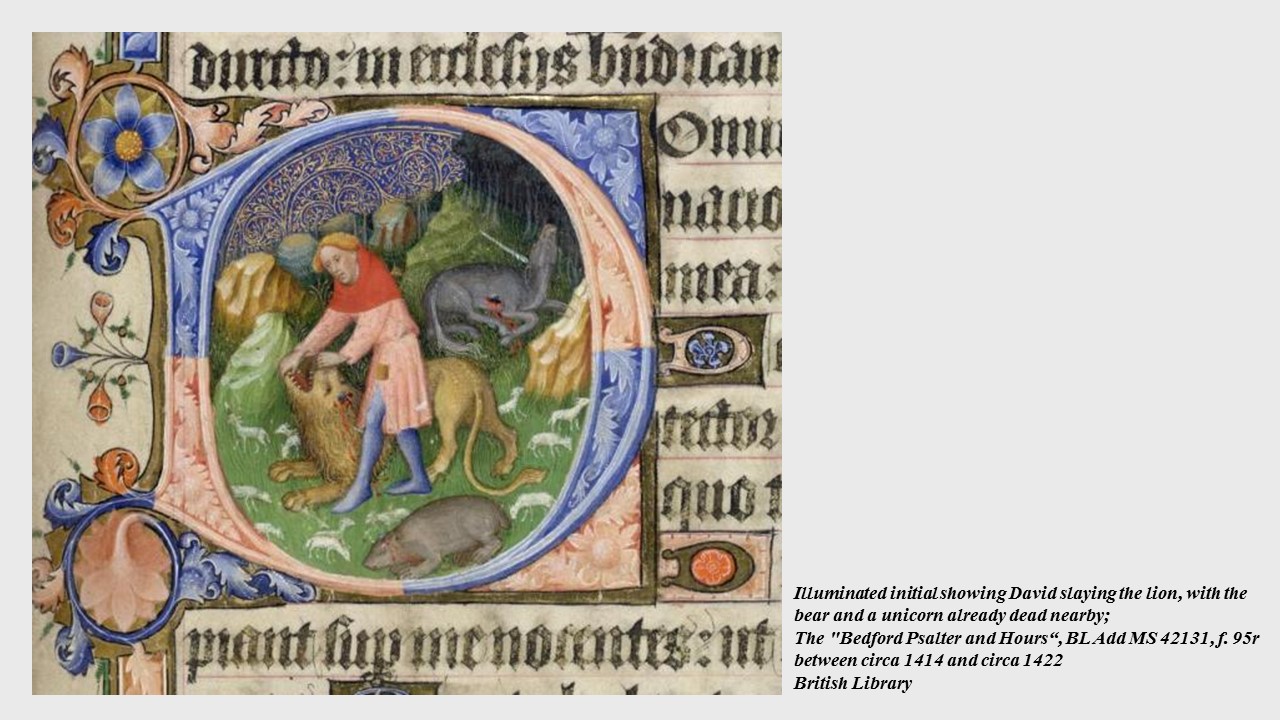 directo: in ecclesijs bn̄dicam
D
Omi
natio
mea:
D
tector
quo t
D
piant sup me nocentes: ut
Illuminated initial showing David slaying the lion, with the
bear and a unicorn already dead nearby;
The "Bedford Psalter and Hours“, BL Add MS 42131, f. 95r
between circa 1414 and circa 1422
British Library